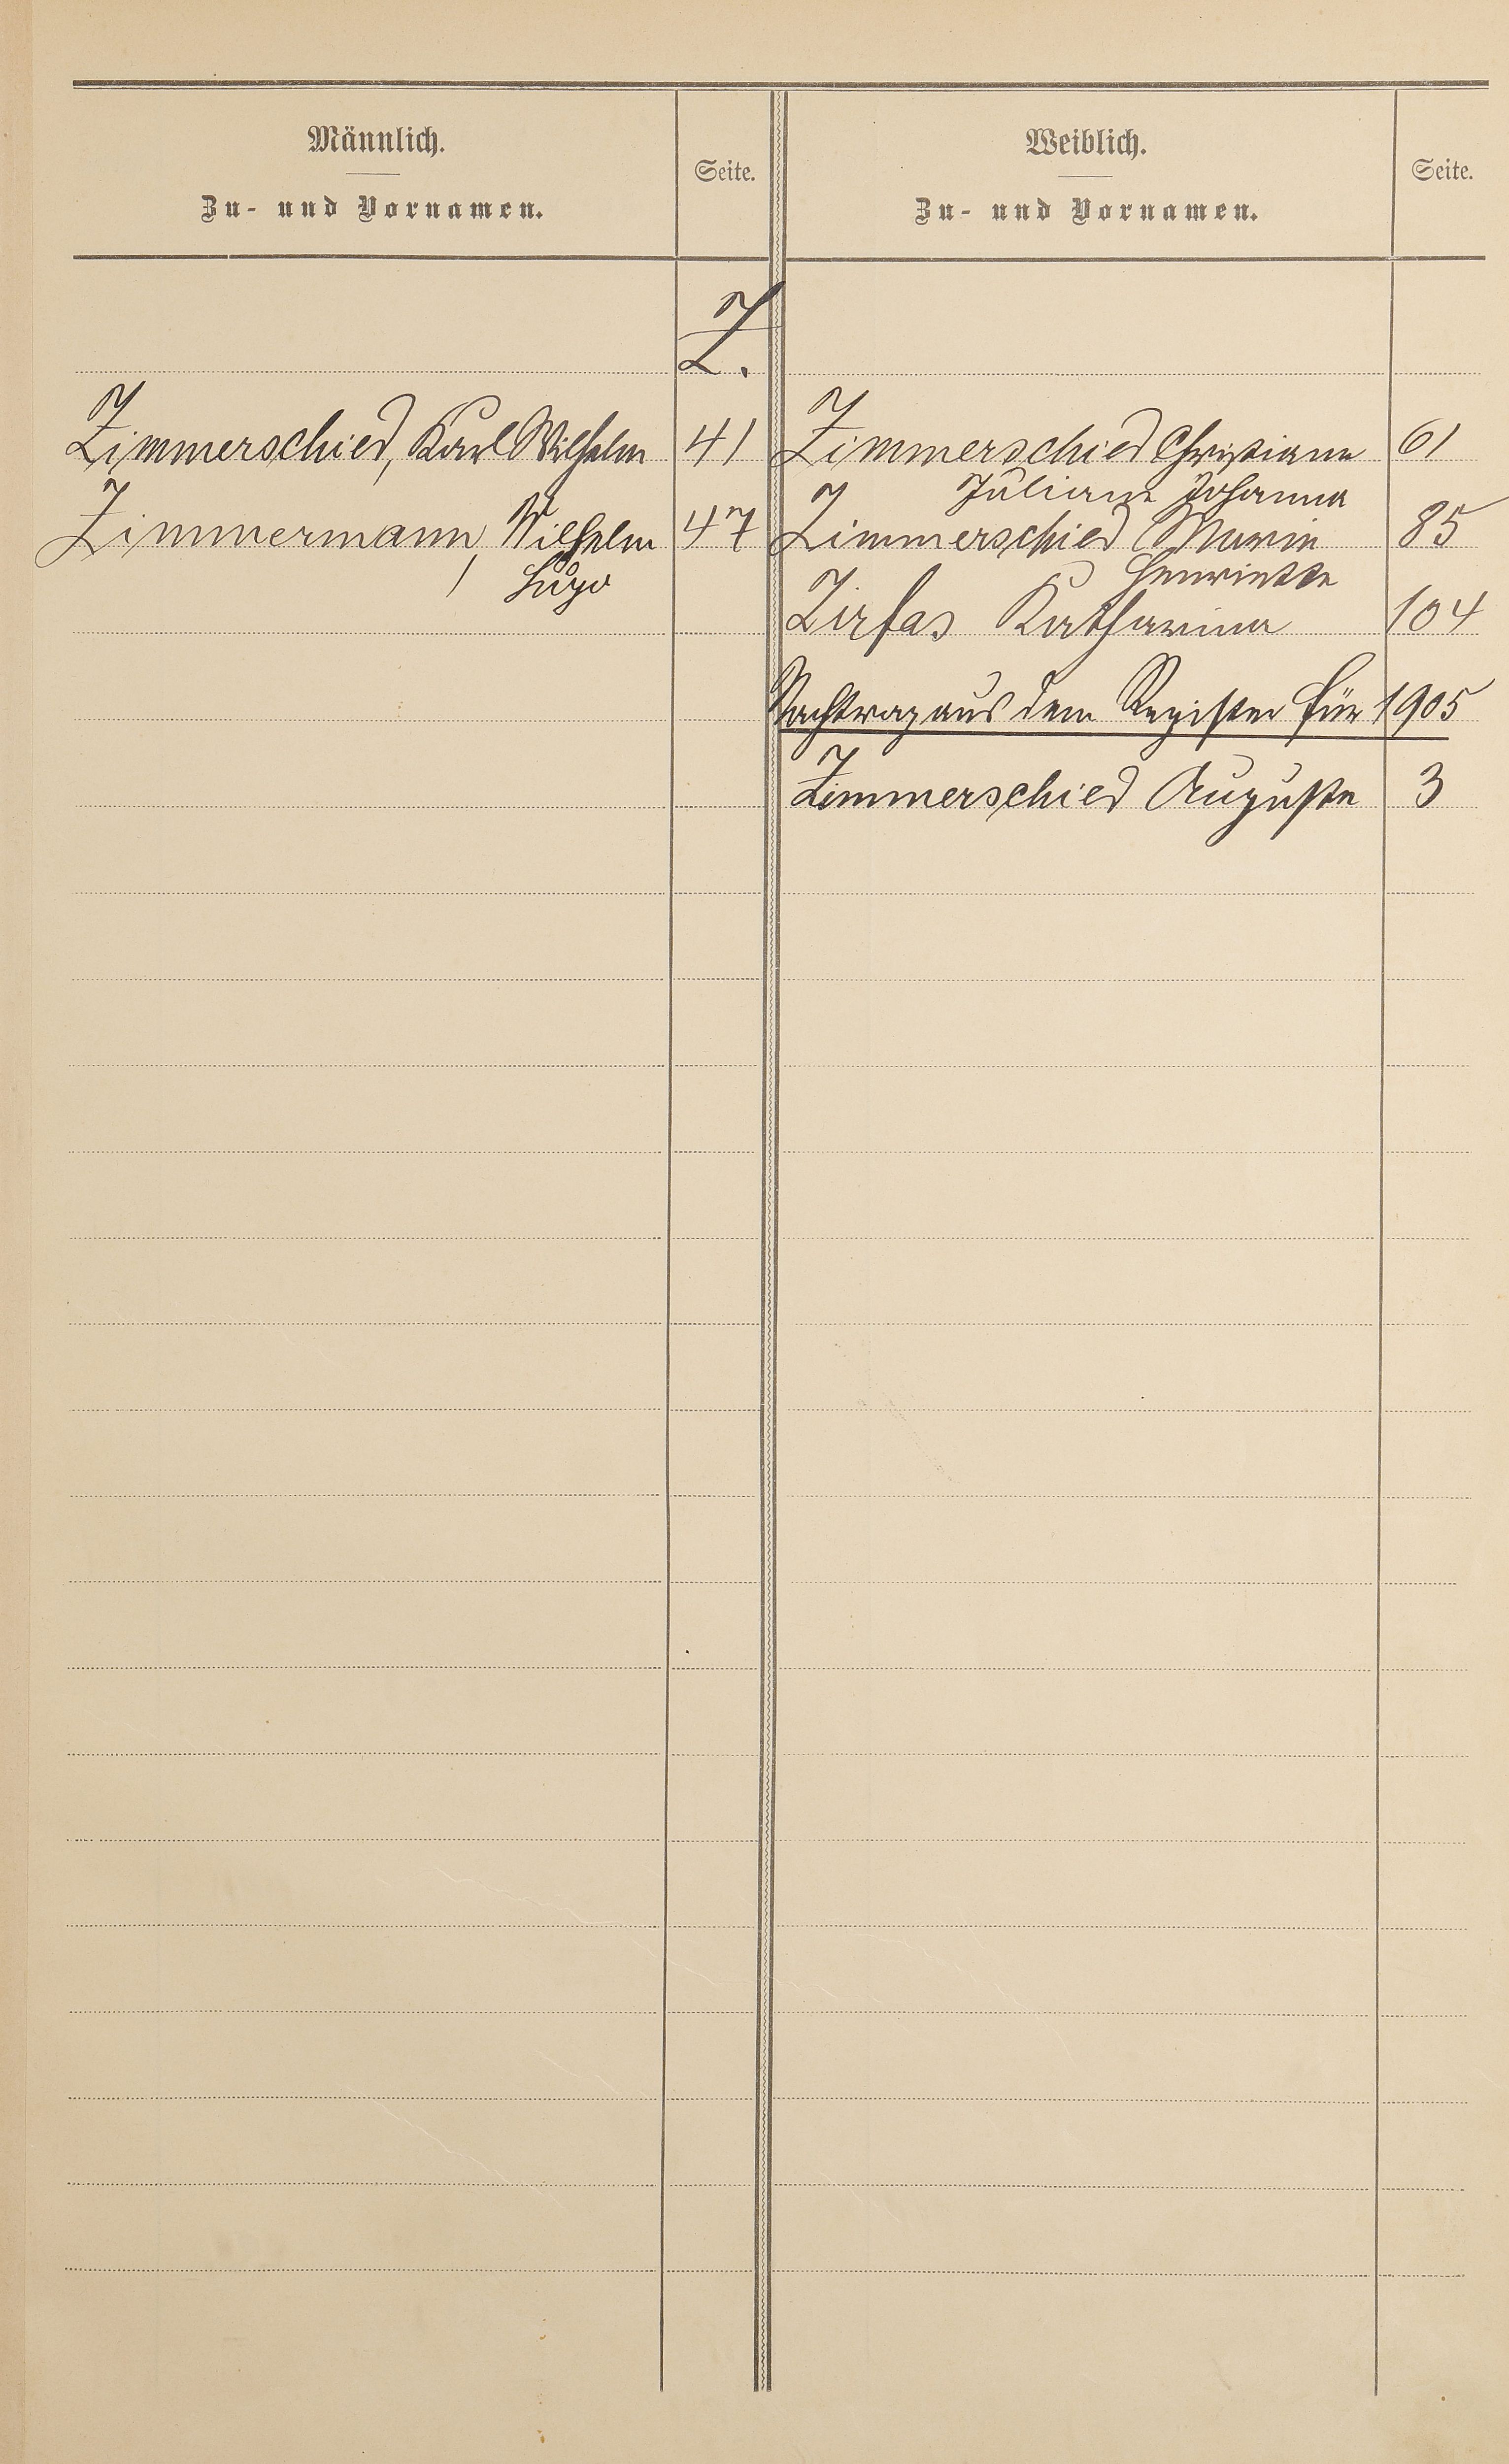 Männlich.
Zu- und Vornamen.
Seite.
Weiblich.
Zu- und Vornamen.
Seite.
Z.
Zimmerschied, Karl Wilhelm 41
Zimmermann, Wilhelm 47
Hugo
Zimmerschied Christiane 61
Juliane Johanna
Zimmerschied Marie 85
Henriette
Zirfas Katharina 104
Nachtrag aus dem Register für 1905
Zimmerschied Auguste 3